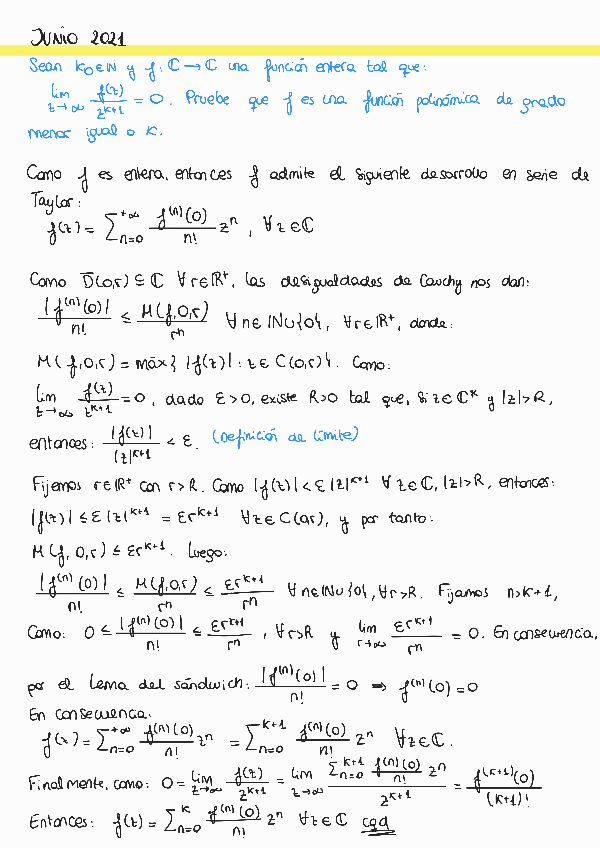 JUNIO 2021
Sean K₀∈ℕ y f:ℂ→ℂ una función entera tal que:
lim_{z→∞} f(z)/z^{k+1} = 0. Pruebe que f es una función polinómica de grado
menor igual a K.
Como f es entera, entonces f admite el siguiente desarrollo en serie de
Taylor:
f(z) = ∑_{n=0}^{+∞} f^{(n)}(0)/n! z^n, ∀z∈ℂ
Como D̄(0,r) ⊆ ℂ ∀r∈ℝ⁺, las desigualdades de Cauchy nos dan:
|f^{(n)}(0)|/n! ≤ M(f,0,r)/r^n ∀n∈ℕ∪{0}, ∀r∈ℝ⁺, donde:
M(f,0,r) = máx{|f(z)| : z∈C(0,r)}. Como:
lim_{z→∞} f(z)/z^{k+1} = 0, dado ε>0, existe R>0 tal que, si z∈ℂ* y |z|>R,
entonces: |f(z)|/|z|^{k+1} < ε. (Definición de límite)
Fijemos r∈ℝ⁺ con r>R. Como |f(z)| < ε|z|^{k+1} ∀z∈ℂ, |z|>R, entonces:
|f(z)| ≤ ε|z|^{k+1} = εr^{k+1} ∀z∈C(0,r), y por tanto:
M(f,0,r) ≤ εr^{k+1}. Luego:
|f^{(n)}(0)|/n! ≤ M(f,0,r)/r^n ≤ εr^{k+1}/r^n ∀n∈ℕ∪{0}, ∀r>R. Fijamos n>k+1,
Como: 0 ≤ |f^{(n)}(0)|/n! ≤ εr^{k+1}/r^n, ∀r>R y lim_{r→∞} εr^{k+1}/r^n = 0. En consecuencia,
por el lema del sándwich: |f^{(n)}(0)|/n! = 0 ⇒ f^{(n)}(0) = 0
En consecuencia:
f(z) = ∑_{n=0}^{+∞} f^{(n)}(0)/n! z^n = ∑_{n=0}^{k+1} f^{(n)}(0)/n! z^n ∀z∈ℂ.
Finalmente, como: 0 = lim_{z→∞} f(z)/z^{k+1} = lim_{z→∞} ∑_{n=0}^{k+1} f^{(n)}(0)/n! z^n / z^{k+1} = f^{(k+1)}(0)/(k+1)!
Entonces: f(z) = ∑_{n=0}^{k} f^{(n)}(0)/n! z^n ∀z∈ℂ cqd